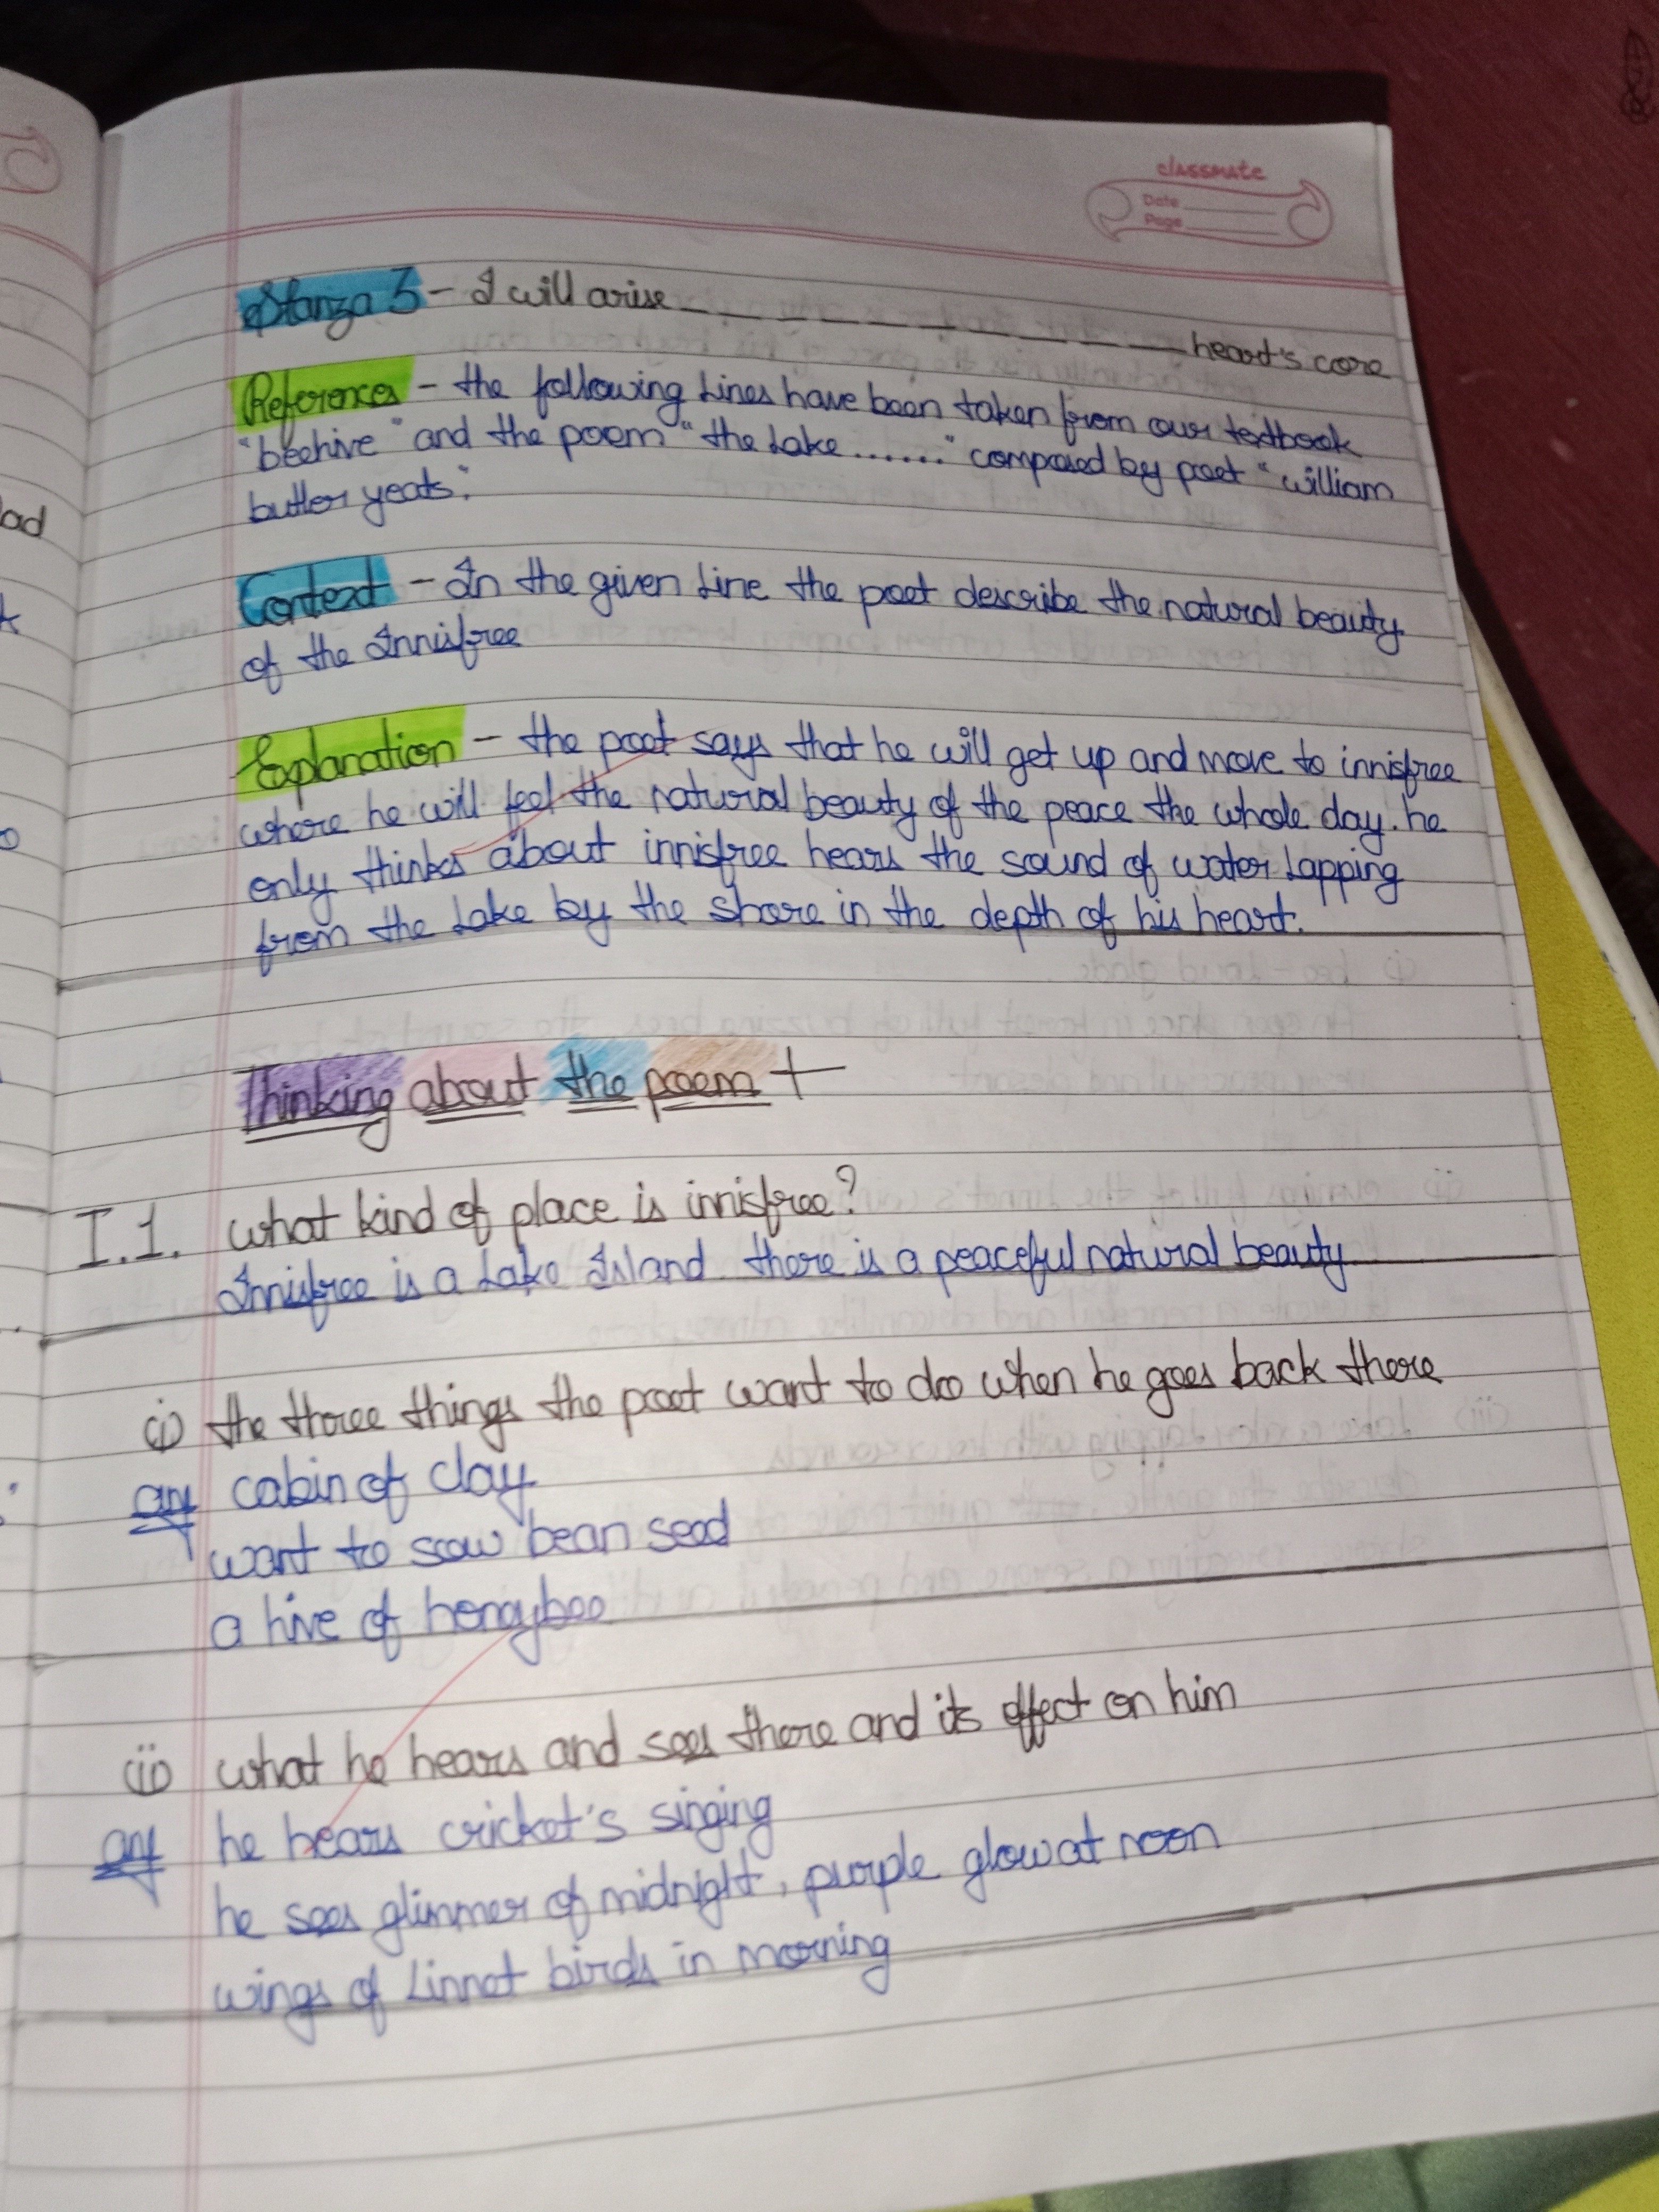 classmate
Date
Page
Stanza 3 - I will arise _ _ _ _ _ _ _ _ _ _ heart's core
References - the following lines have been taken from our textbook
"beehive" and the poem "the lake ......." composed by poet "william
butler yeats."
Context - In the given line the poet describe the natural beauty
of the Innisfree
Explanation - the poet says that he will get up and move to innisfree
where he will feel the natural beauty of the peace the whole day. he
only thinks about innisfree hears the sound of water lapping
from the lake by the shore in the depth of his heart.
Thinking about the poem
I.1. what kind of place is innisfree?
Innisfree is a Lake Island. there is a peaceful natural beauty
(i) the three things the poet want to do when he goes back there
ans cabin of clay
want to sow bean seed
a hive of honeybee
(ii) what he hears and sees there and its effect on him
ans he hears cricket's singing
he sees glimmer of midnight, purple glow at noon
wings of Linnet birds in morning
ad